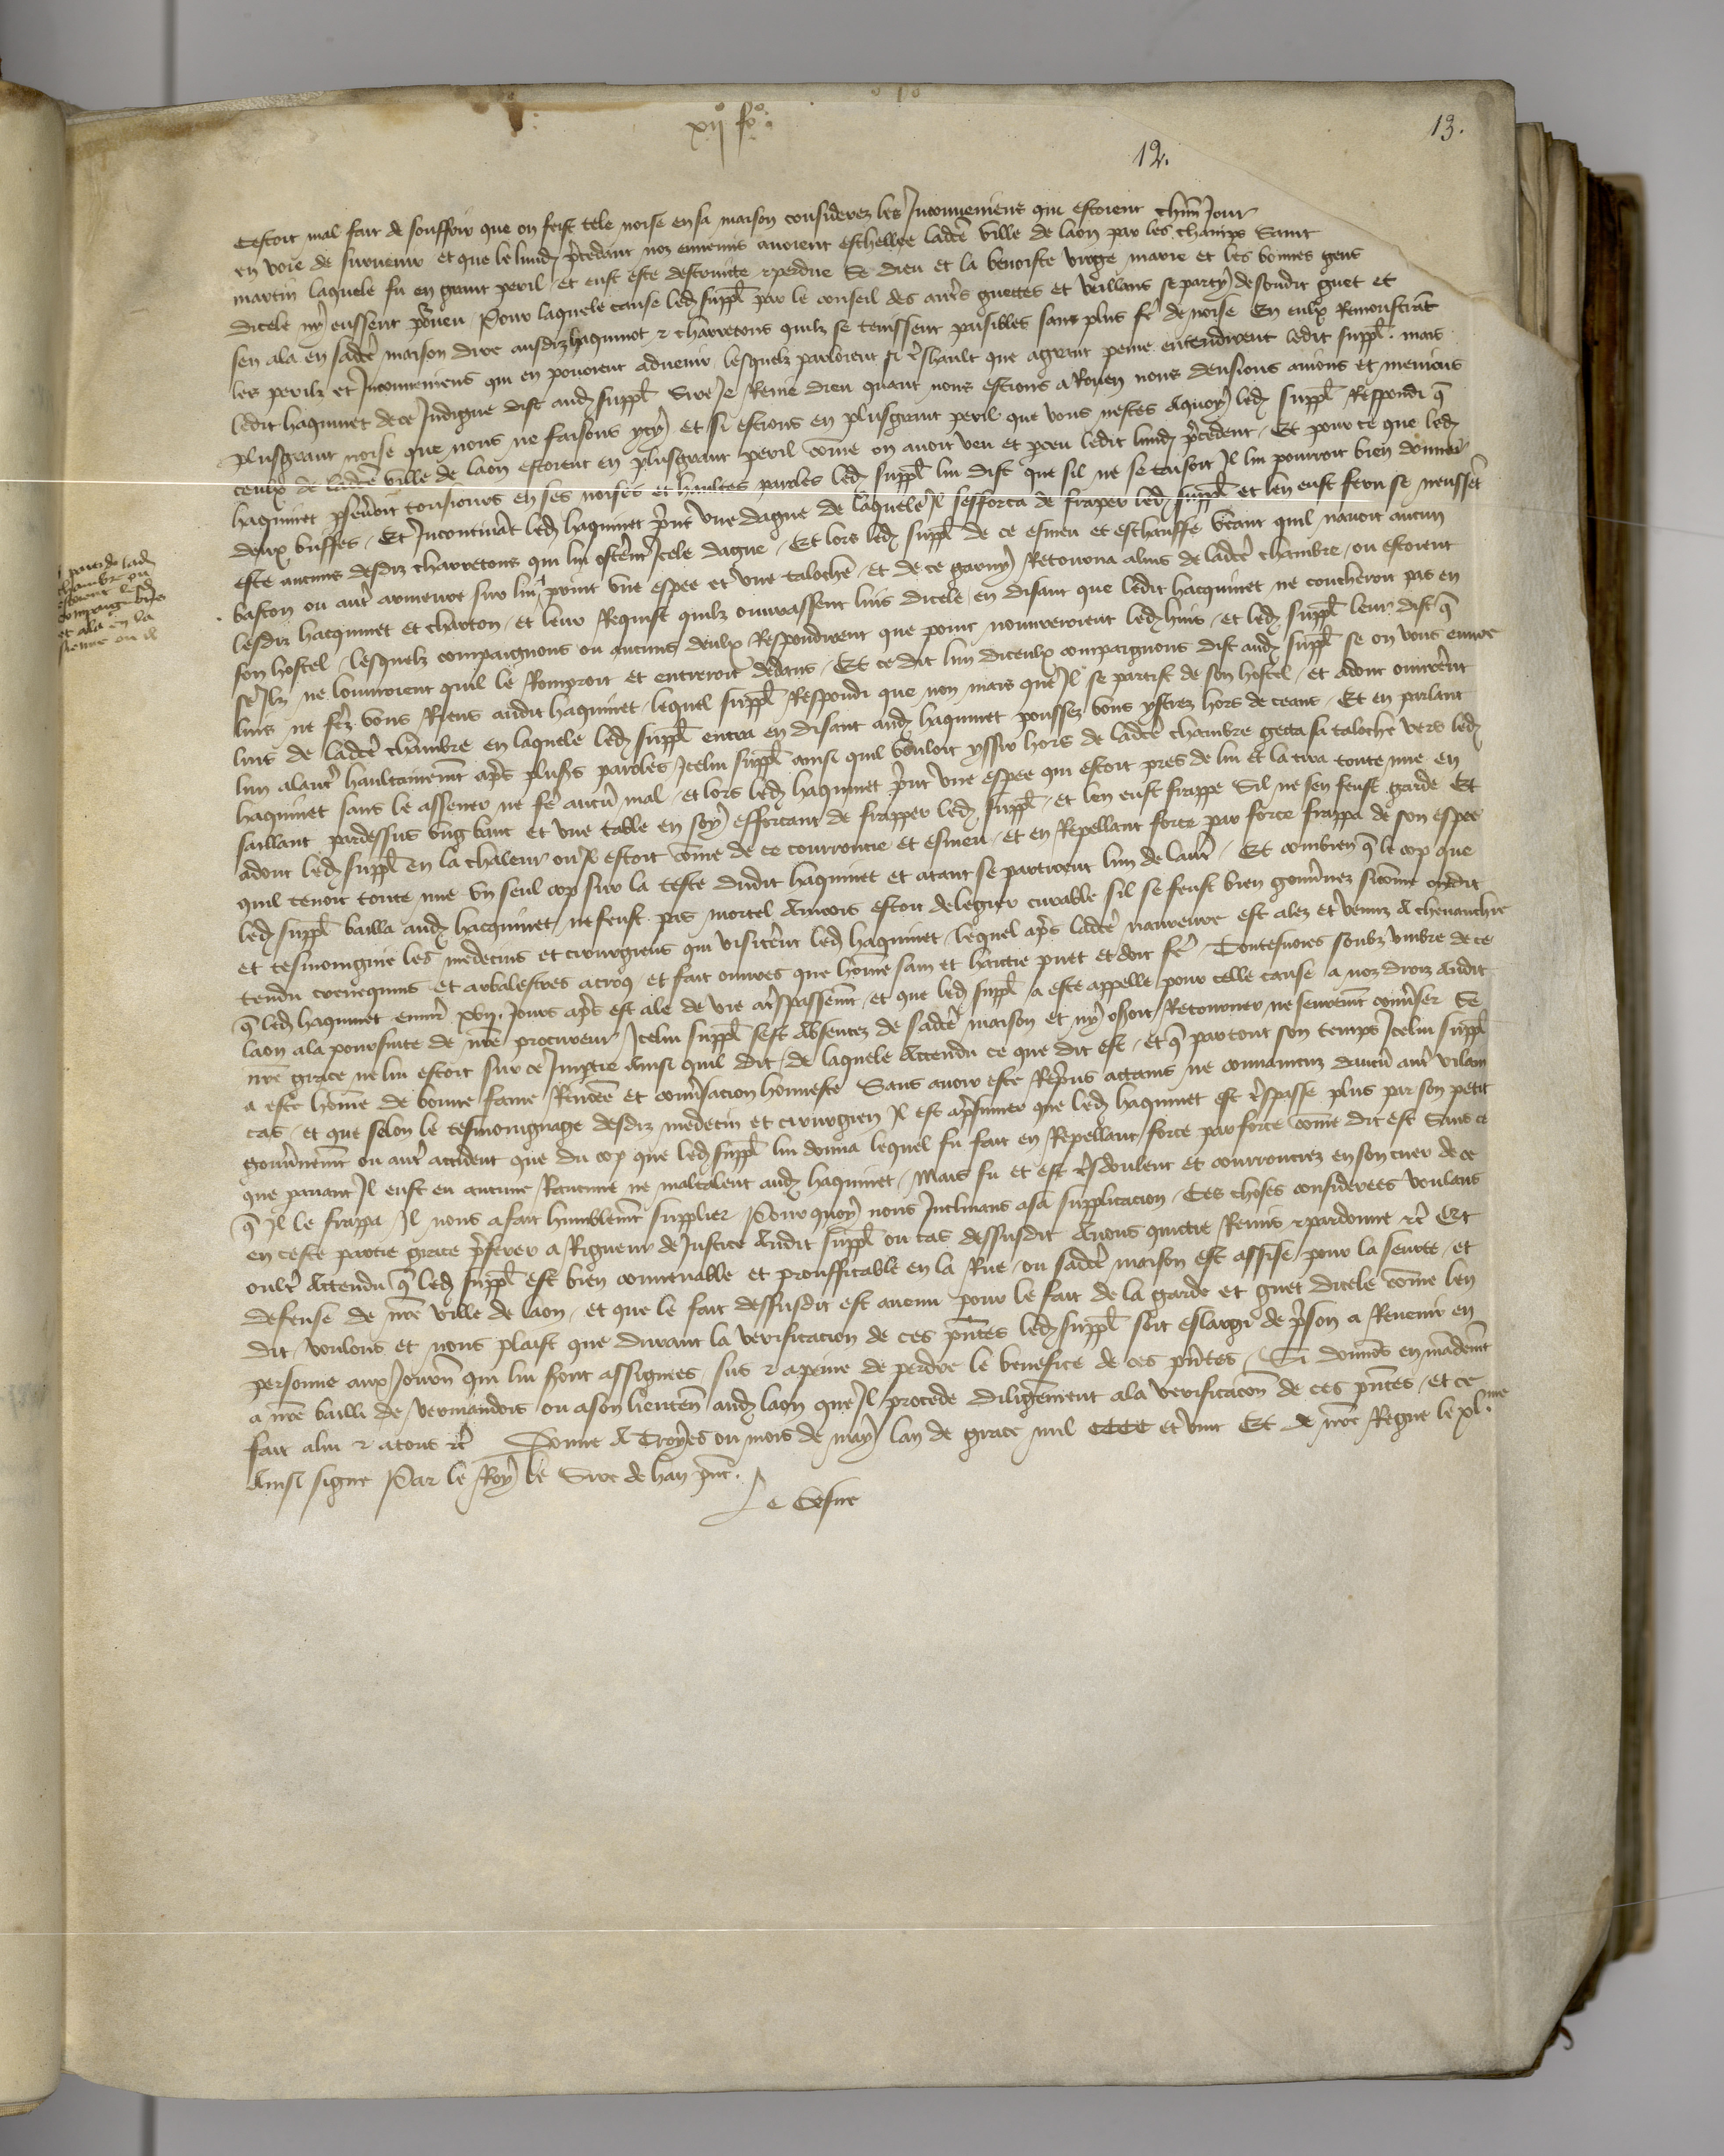 xii fo.
12.
13.
cestoit mal fait de souffrir que on feist tele noise en sa maison considerez les Inconveniens qui estoient chũn Jour
en voie de survenir et que le lundj p̃cedant noz ennemis avoient eschellee ladcẽ ville de laon par les champs Saint
martin laquele fu en grant peril et eust este destruicte & perdue Se dieu et la benoiste virge marie et les bonnes gens
dicele ny eussent p̃veu / Pour laquele cause ledj suppl̃ par le conseil des autr̃s guettes et veillans se party descendit guet et
sen ala en sadcẽ maison dire ausdiz haquinet & charretons quilz se tenissent paisibles sans plus fẽ de noise En eulx Remonstrãt
les perilz et Inconveniens qui en povoient advenir lesquelz parloient si tr̃shault que agrant peine entendirent ledit suppl̃. mais
ledit haquinet de ce Indigne dist audj suppl̃ Sire Je Renie dieu quant nous estions a Rouen nous dansions avions et menions
plusgrant noise que nous ne faisons ycy et si estions en plusgrant peril que vous nestes Aquoy ledj suppl̃ Respondi q̃
ceulx de ladcẽ ville de laon estoient en plusgrant peril cõme on avoit veu et p̃ceu ledit lundj p̃cedent / Et pour ce que ledj
haquinet p̃sevẽoit tousiours en ses noises et haultes paroles ledj suppl̃ lui dist que sil ne se taisoit Il lui pourroit bien donner
deux buffes / Et Incontinãt ledj haquinet p̃nt une dague de laquele Il sefforca de fraper ledj suppl̃ et len eust feru se neussẽt
este aucuns desdiz charretons qui lui osterẽt Icele dague / Et lors ledj suppl̃ de ce esmeu et eschauffe veant quil navoit aucun
baston ou autr̃ armeure sur lui print une espee et une taloche / et de ce garny Retourna aluis de ladcẽ chambre / ou estoient
lesdiz hacquinet et charton / et leur Requist quilz ouvrassent luis dicele / en disant que ledit hacquinet ne coucheroit pas en
son hostel / lesquelz compaignons ou aucuns deulx Respondirent que point nouvreroient ledj huis / et ledj suppl̃ leur dist q̃
se Ilz ne louvroient quil le Romproit et entreroit dedans / Et ce dit lun diceulx compaignons dist audj suppl̃ se on vous euvre
luis ne ferez vous Riens audit haquinet / lequel suppl̃ Respondi que non mais que Il se partist de son hostel / et adonc ouvrerẽt
luis de ladcẽ chambre en laquele ledj suppl̃ entra en disant audj haquinet poussez vous ystrez hors de ceans / Et en parlant
lun alautr̃ haultainemẽt apr̃s plus̃s paroles Icelui suppl̃ ainsi quil vouloit yssir hors de ladcẽ chambre getta sa taloche vers ledj
haquinet sans le assener ne fẽ aucũ mal / et lors ledj haquinet p̃nt une espee qui estoit pres de lui et la tira toute nue en
saillant pardessus ung banc et une table en soy efforcant de frapper ledj suppl̃ / et len eust frappe Sil ne sen feust garde Et
adonc ledj suppl̃ en la chaleur ou Il estoit cõme de ce courroucie et esmeu / et en Repellant force par force frappa de son espee
quil tenoit toute nue un seul cop sur la teste dudit haquinet et atant se partirent lun de lautr̃ / Et combien q̃ le cop que
ledj suppl̃ bailla audj hacquinet / ne feust pas mortel Aincois estoit delegier curable sil se feust bien gouvernez sicõme ondit
et tesmoingnie les medecins et cirurgiens qui visiterẽt ledj haquinet / lequel apr̃s ladcẽ navreure est alez et venuz A chevauchie
tendu crenequins et arbalestres acroq / et fait euvres que hõme sain et haitie puet et doit fẽ / Toutesvoies soubz umbre de ce
q̃ ledj haquinet envir̃ xvij. Jours apr̃s est ale de vie atr̃spassemẽt / et que ledj suppl̃ a este appelle pour celle cause a noz droiz Audit
laon ala poursuite de nr̃e procureur Icelui suppl̃ sest Absentez de sadcẽ maison et ny osoit Retourner ne seuremẽt cõṽser Se
nr̃e grace ne lui estoit sur ce Impartie Ainsi quil dit / de laquele Attendu ce que dit est / et q̃ partout son temps Icelui suppl̃
a este hõme de bonne fame Renõee et cõṽsacion honneste Sans avoir este Rep̃ns actains ne convaincuz daucũ autr̃ vilain
cas / et que selon le tesmoingnage desdiz medecin et cirurgien Il est ap̃sumer que ledj haquinet est tr̃spasse plus par son petit
gouṽnemẽt ou autr̃ accident que du cop que ledj suppl̃ lui donna lequel fu fait en Repellant / force par force cõme dit est Sans ce
que paravant Il eust eu aucune Rancune ne maltalent audj haquinet / Mais fu et est tr̃sdoulent et courroucez en son cuer de ce
q̃ Il le frapa / Il nous a fait humblemẽt supplier / Pourquoy nous Inclinans asa supplicacion / Ces choses considerees Voulans
en ceste partie grace p̃ferer a Rigueur de Justice Audit suppl̃ ou cas dessusdit Avons quictie Remis & pardonne &c̃ Et
oultr̃ Attendu q̃ ledj suppl̃ est bien convenable et prouffitable en la Rue / ou sadcẽ maison est assise / pour la seurte / et
defense de nr̃e ville de laon / et que le fait dessusdit est avenu pour le fait de la garde et guet dicele cõme len
dit / voulons et nous plaist que durant la verificacion de ces p̃ntes ledj suppl̃ soit eslargi de p̃son a Revenir en
personne aux Journ̄ qui lui sont assignees / sus & apeine de perdre le benefice de ces p̃ntes / Si donnõs en mãdemẽt
a nr̃e bailli de vermandois ou ason lieuteñ audj laon que Il procede diligẽment ala verificacõn de ces p̃ntes / et ce
fait alui & atous &c̃ Donne A Troyes ou mois de may lan de grace mil CCCC et vint Et de nr̃e Regne le xl.me
Ainsi signe Par le Roy le Sire de han p̃nt.
Le Besne
ladj
chambre ou
estoient ledj
haquinet
et ala en la
sienne ou il